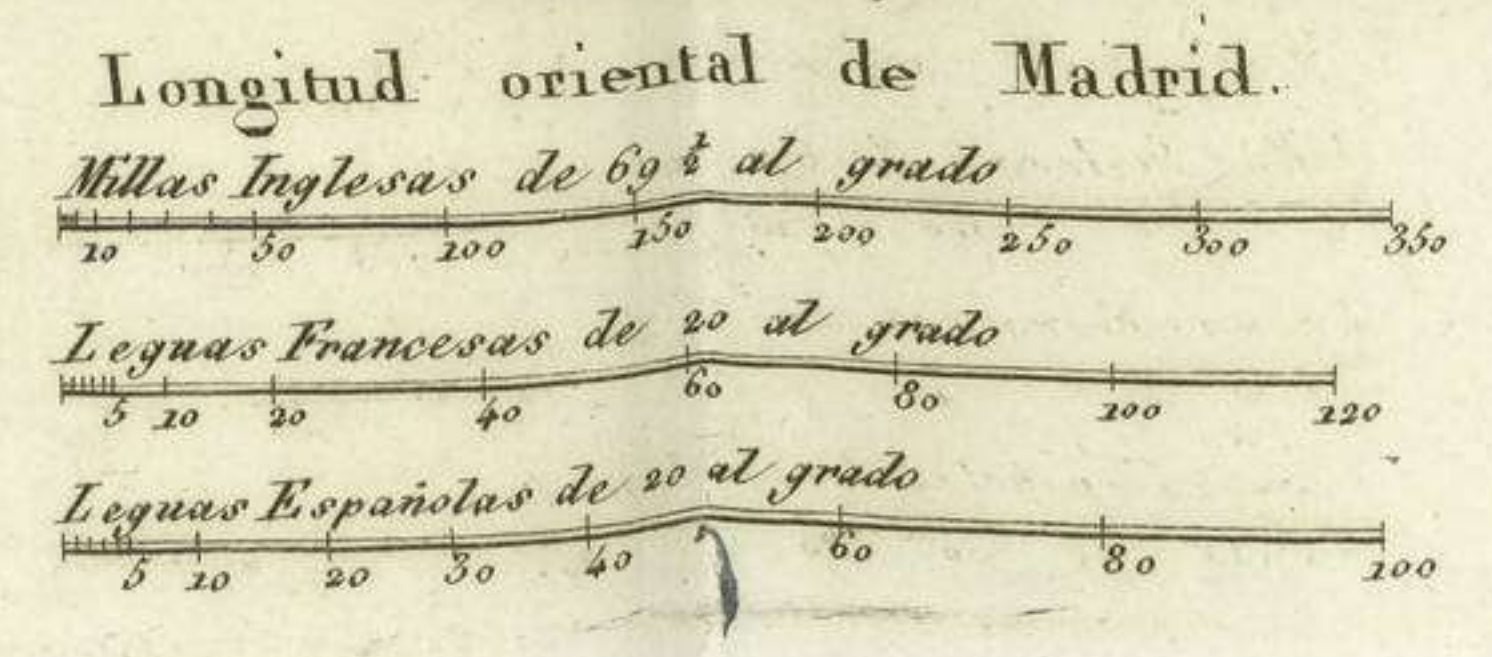 Longitud oriental de Madrid.
Millas Inglesas de 69 ½ al grado
10 50 100 150 200 250 300 350
Leguas Francesas de 20 al grado
5 10 20 40 60 80 100 120
Leguas Españolas de 20 al grado
5 10 20 30 40 60 80 100